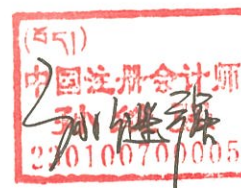 中国注册会计师
孙继强
220100700005